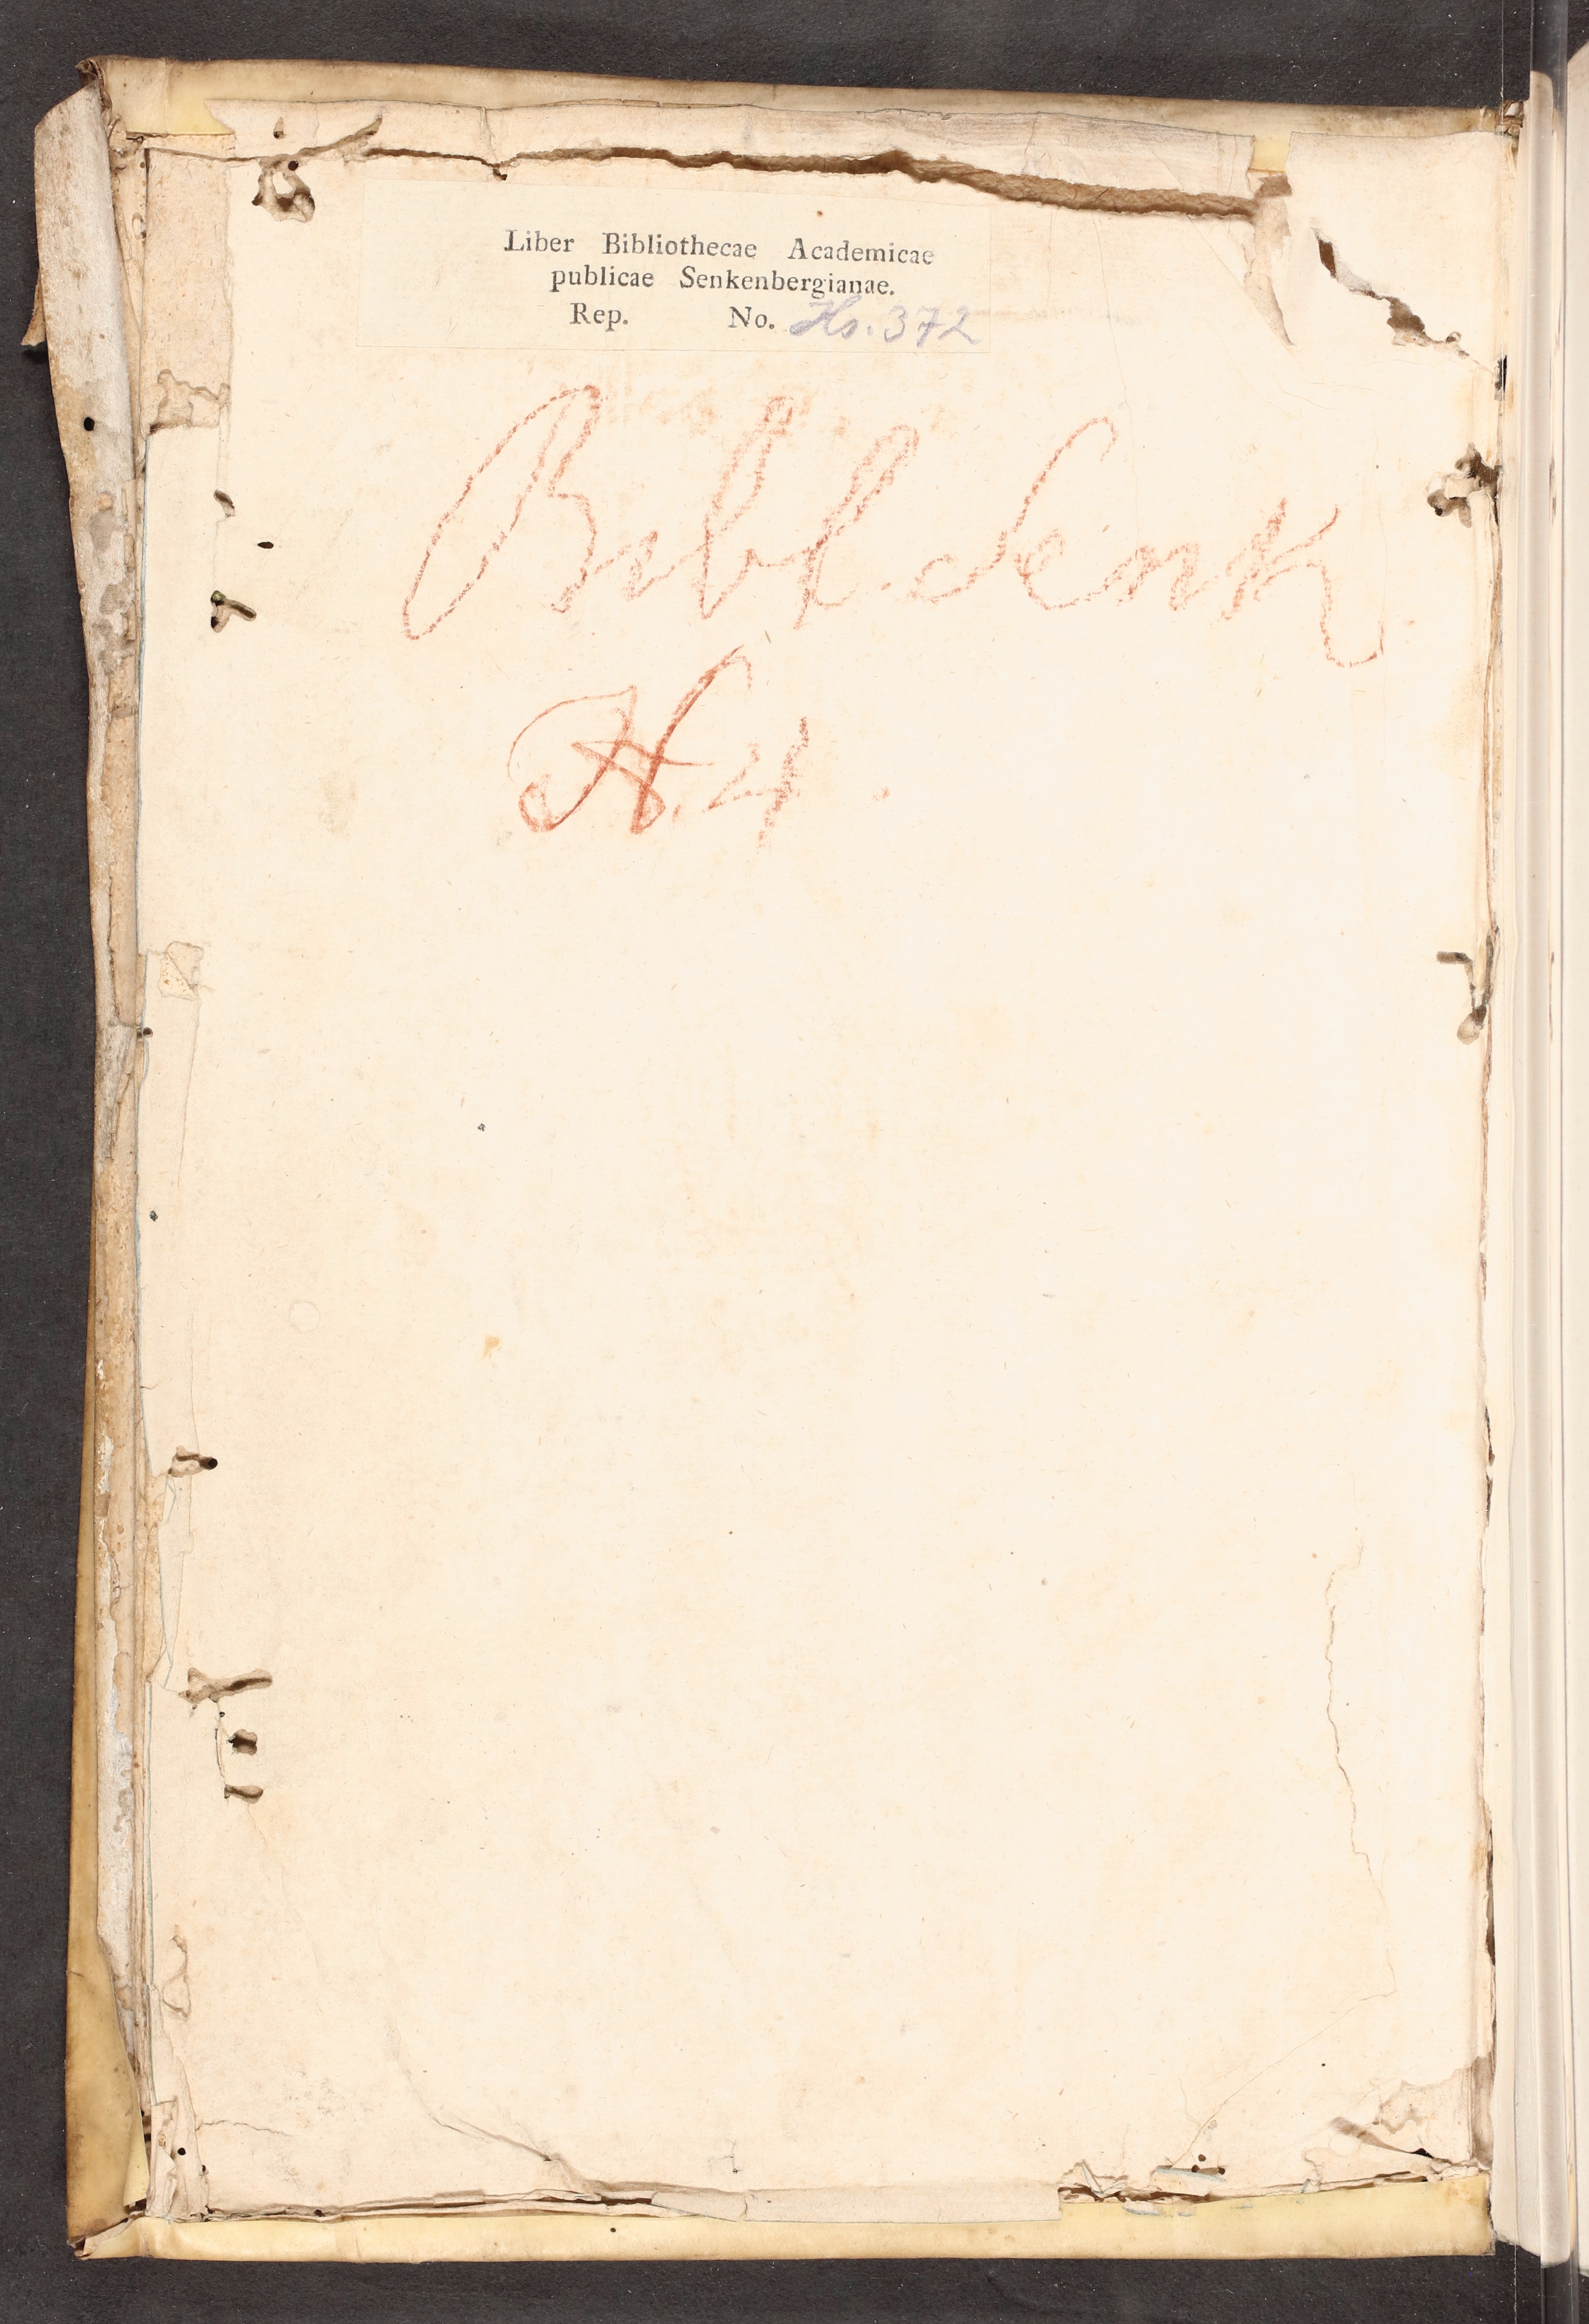 Liber Bibliothecae Academicae
publicae Senkenbergianae.
Rep. No. Hs. 372
Bibl. Senk
N. 4.